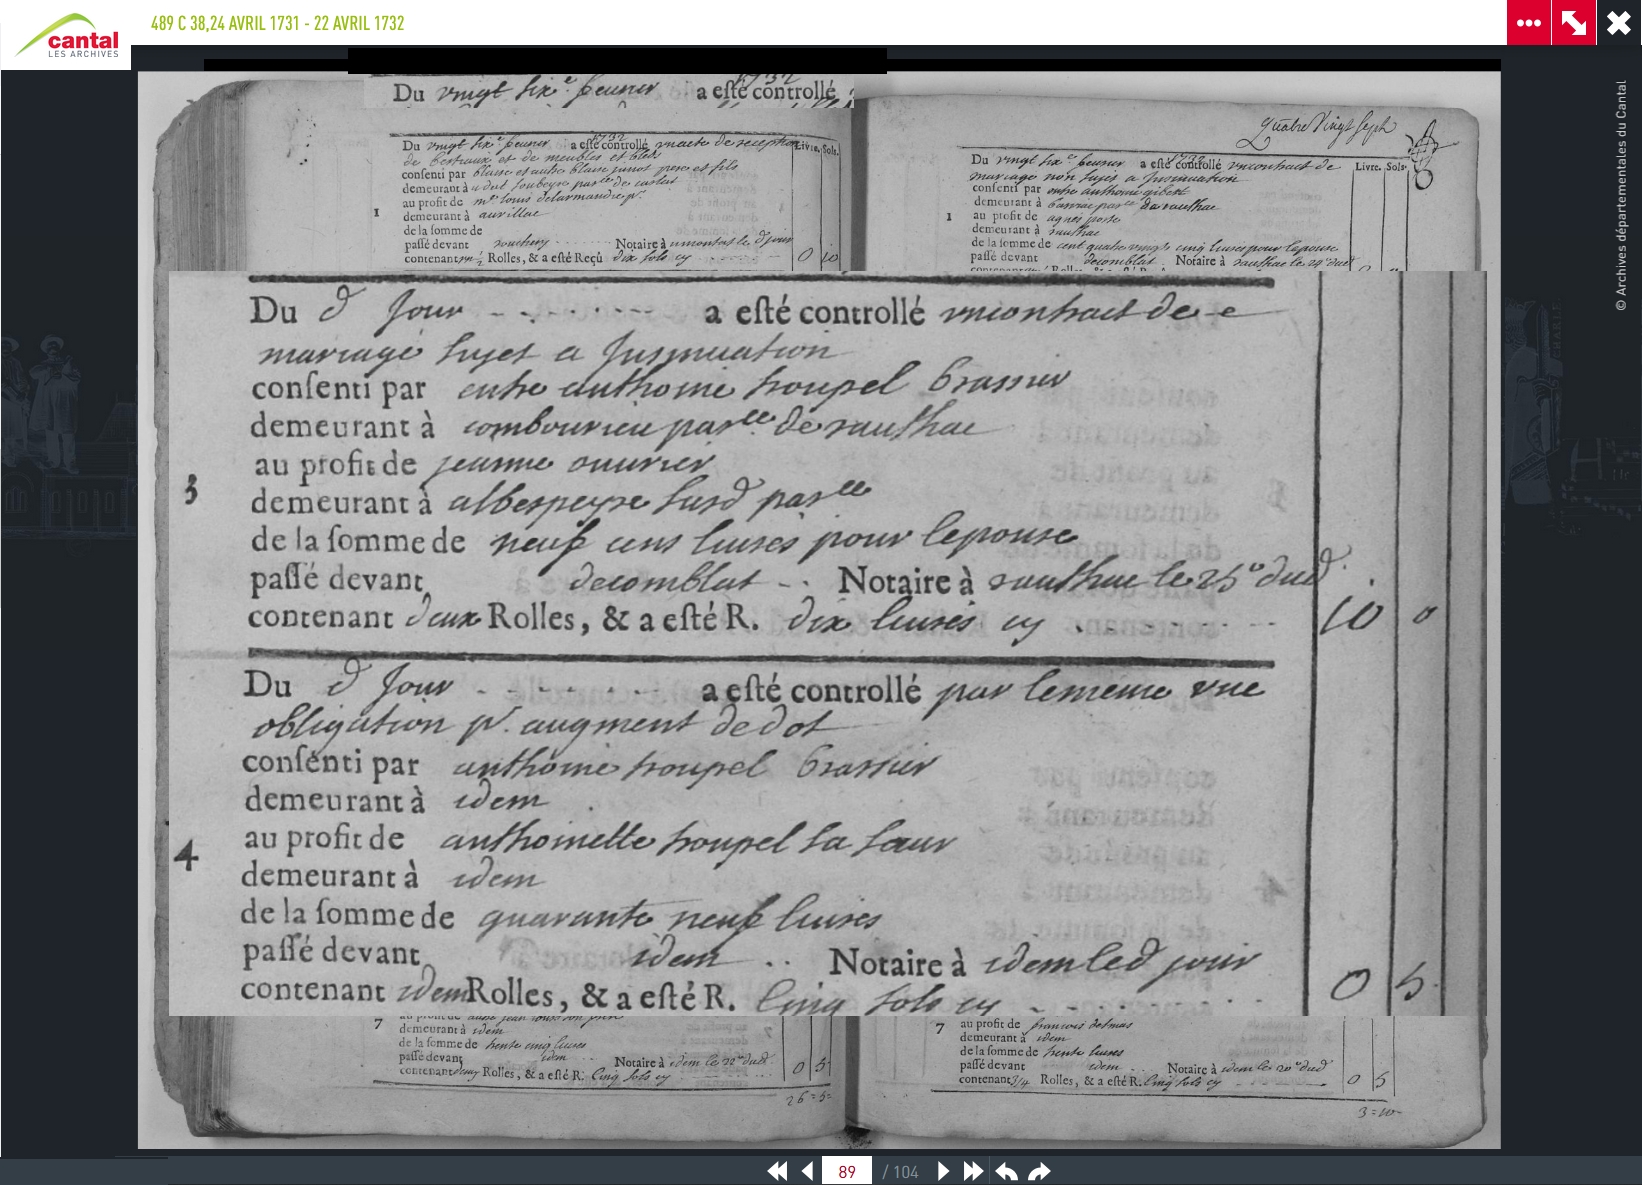 489 C 38,24 AVRIL 1731 - 22 AVRIL 1732
cantal
LES ARCHIVES
© Archives départementales du Cantal
Du vingt six.e feurier a esté controllé
1732
Du vingt six.e feurier a esté controllé vnacte de reception Livre. Sols.
de bestiaux et de meubles et bled
consenti par blaise et autre blaise
demeurant à
au profit de
1
demeurant à aurillac
de la somme de
passé devant Notaire à
contenant Rolles, & a esté Reçû dix sols cy 0 10
quatre vingt sept
1732
Du vingt six.e feurier a esté controllé vncontract de Livre. Sols.
mariage non sujet a Jnsinuation
consenti par entre anthoine gibert
demeurant à par.ce de rauthac
1
au profit de agnes
demeurant à rauthac
de la somme de cent quatre vingts cinq liures pour lepouse
passé devant decomblat Notaire à rauthac le dud.
Du d. Jour a esté controllé vncontract de
mariage sujet a Jnsinuation
consenti par entre anthoine troupel brassier
demeurant à combourieu par.lle de rauthac
au profit de jeanne ouurier
3
demeurant à albespeyre susd par.lle
de la somme de neuf cens liures pour lepouse
passé devant decomblat Notaire à rauthac le 25.e dud.
contenant deux Rolles, & a esté R. dix liures cy 10 0
Du d. Jour a esté controllé par lemême vne
obligation p.r augment de dot
consenti par anthoine troupel brassier
demeurant à idem
au profit de anthoinette troupel sa sœur
4
demeurant à idem
de la somme de quarante neuf liures
passé devant idem Notaire à idem led. jour
contenant idem Rolles, & a esté R. Cinq sols cy 0 5
au profit de autre jean
7
demeurant à idem
de la somme de trente cinq liures
passé devant idem Notaire à idem le 22.e dud.
contenant deux Rolles, & a esté R. Cinq sols cy 0 5
26=5=
au profit de francois delmas
7
demeurant à idem
de la somme de trente liures
passé devant idem Notaire à idem le 20.e dud.
contenant 3/4 Rolles, & a esté R. Cinq sols cy 0 5
3=10=
89 / 104